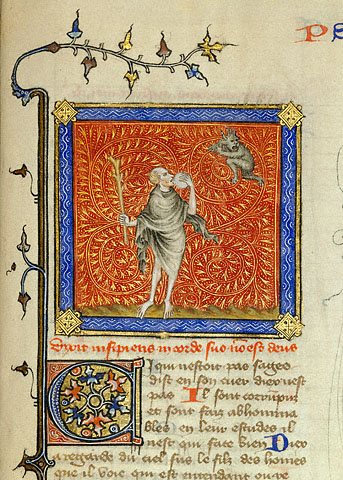 PS
Dixit insipiens in corde suo nō est deus
CIl qui nestoit pas sages
dist en son cuer dieu nest
pas Il sont corrumpu
et sont faiz abhomina
bles en leur estudes il
nest qui face bien Dieu
regarde du ciel sus le filz des homes
que il voie qui est entendant ou re